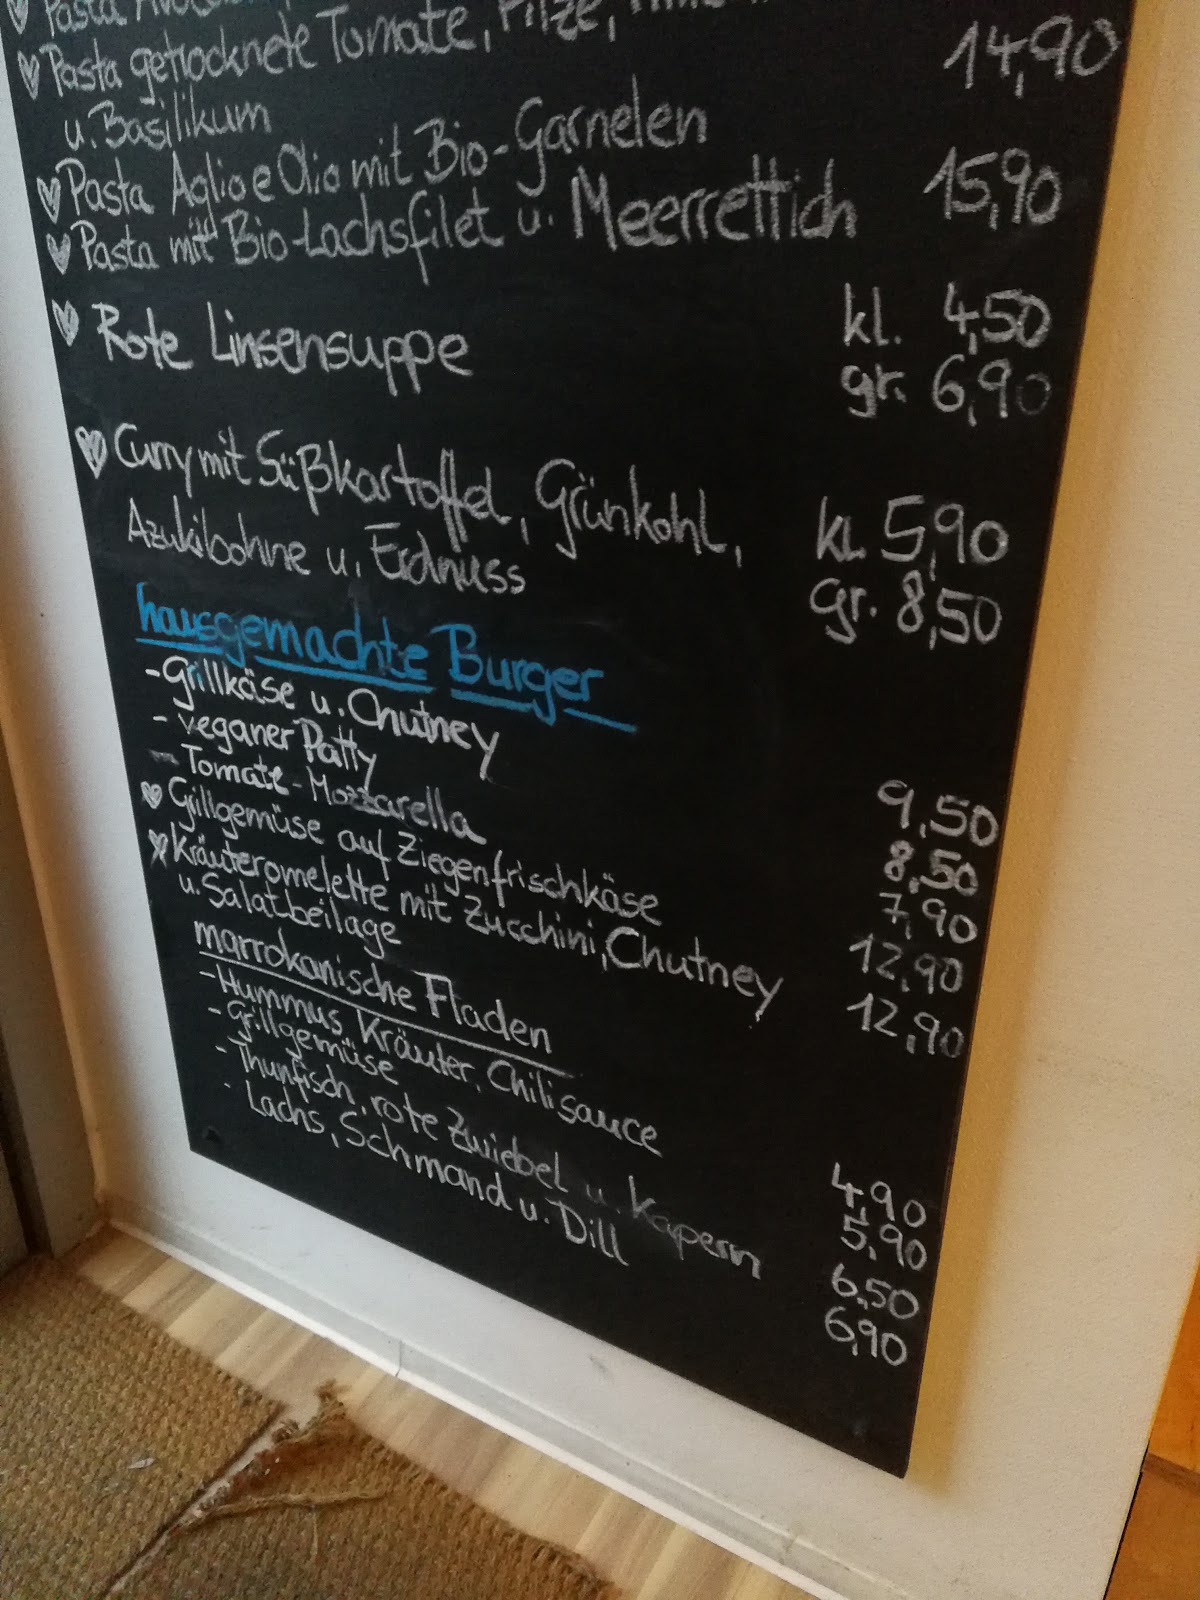 ♥ Pasta
♥ Pasta getrocknete Tomate, Pilze,
u. Basilikum 14,90
♥ Pasta Aglio e Olio mit Bio-Garnelen
♥ Pasta mit Bio-Lachsfilet u. Meerrettich 15,90
♥ Rote Linsensuppe kl. 4,50
gr. 6,90
♥ Curry mit Süßkartoffel, Grünkohl, kl. 5,90
Azukibohne u. Erdnuss gr. 8,50
hausgemachte Burger
- Grillkäse u. Chutney 9,50
- veganer Patty 8,50
- Tomate-Mozzarella 7,90
♥ Grillgemüse auf Ziegenfrischkäse 12,90
♥ Kräuteromelette mit Zucchini, Chutney 12,90
u. Salatbeilage
marrokanische Fladen
- Hummus, Kräuter, Chilisauce 4,90
- Grillgemüse 5,90
- Thunfisch, rote Zwiebel u. Kapern 6,50
- Lachs, Schmand u. Dill 6,90